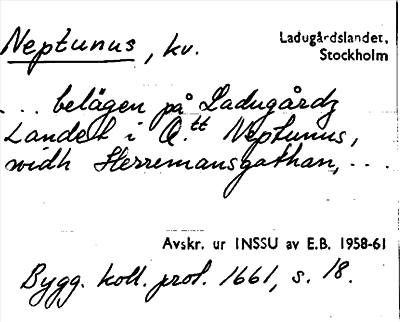 Neptunus, kv.
Ladugårdslandet,
Stockholm
... belägen på Ladugårdz
Landet i Q.tt Neptunus,
widh Herremansgathan, ...
Avskr. ur INSSU av E.B. 1958-61
Bygg. koll. prot. 1661, s. 18.